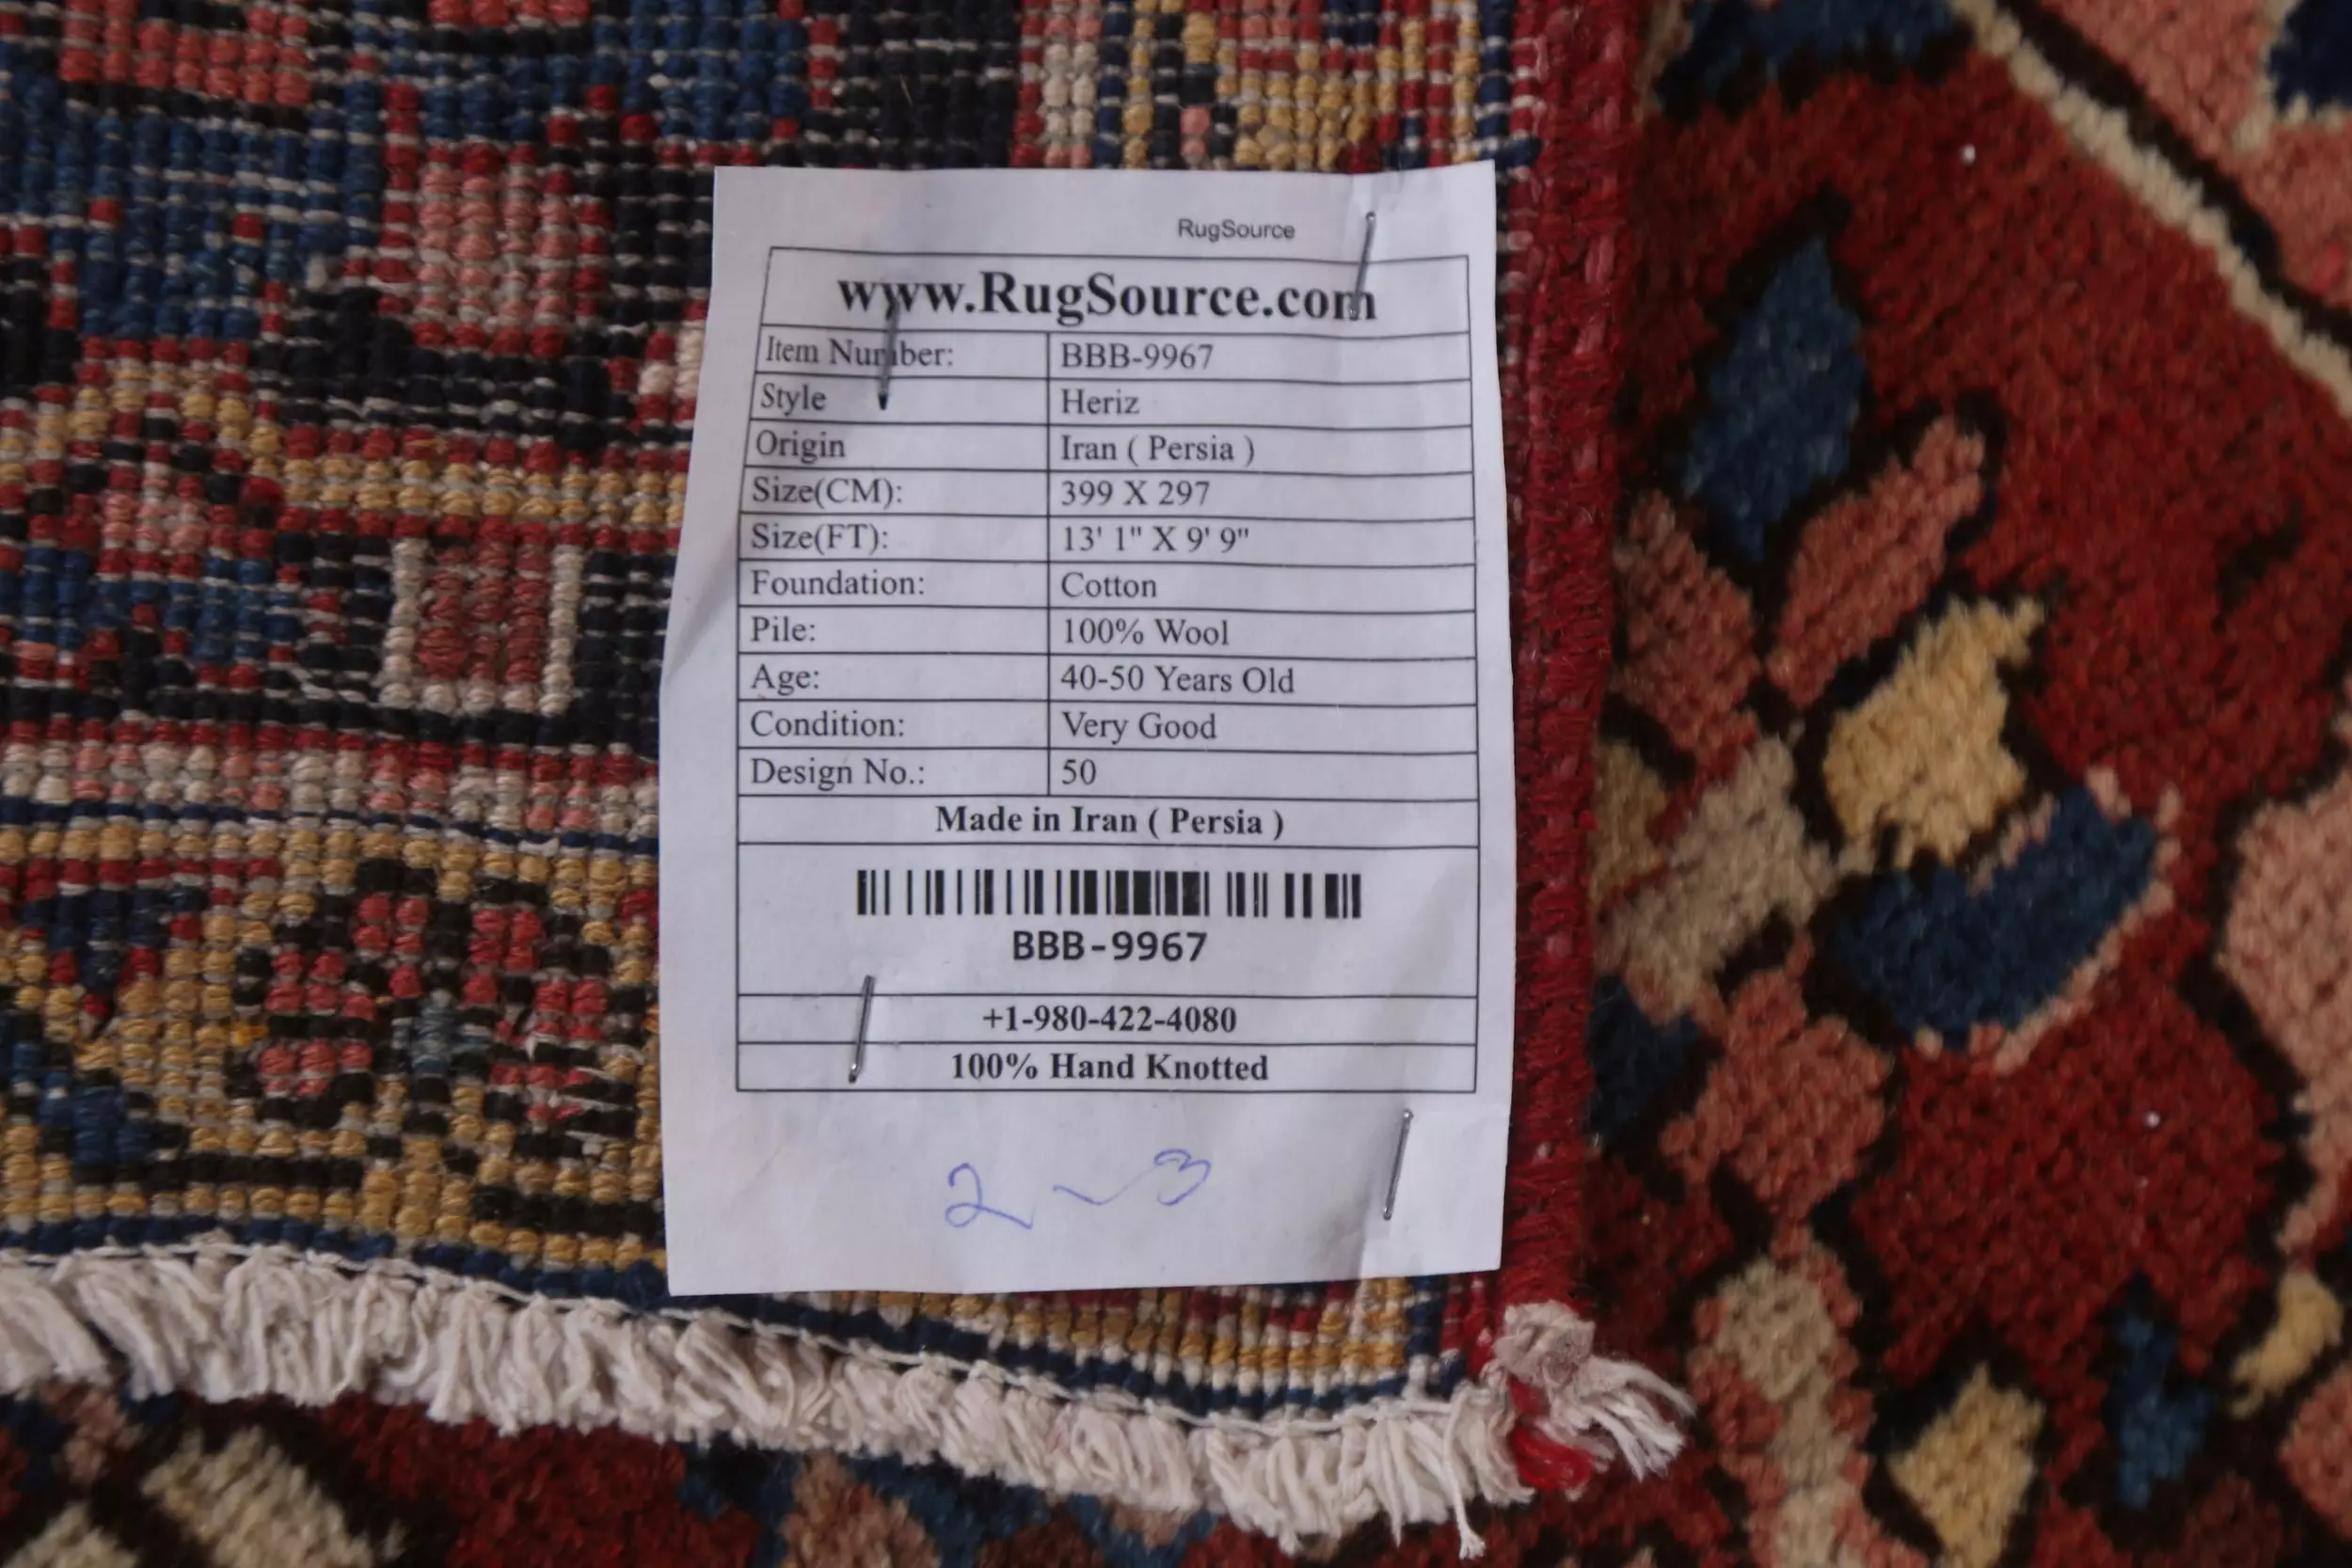 RugSource
www.RugSource.com
Item Number: BBB-9967
Style Heriz
Origin Iran ( Persia )
Size(CM): 399 X 297
Size(FT): 13' 1" X 9' 9"
Foundation: Cotton
Pile: 100% Wool
Age: 40-50 Years Old
Condition: Very Good
Design No.: 50
Made in Iran ( Persia )
BBB-9967
+1-980-422-4080
100% Hand Knotted
2 ~ 3